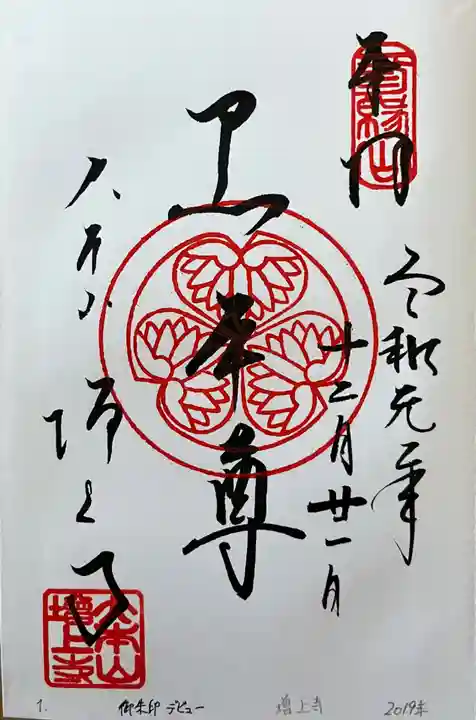 奉拝
令和元年
十二月廿一日
黒本尊
大本山
増上寺
三縁山
大本山
増上寺
1.
御朱印デビュー
増上寺
2019年